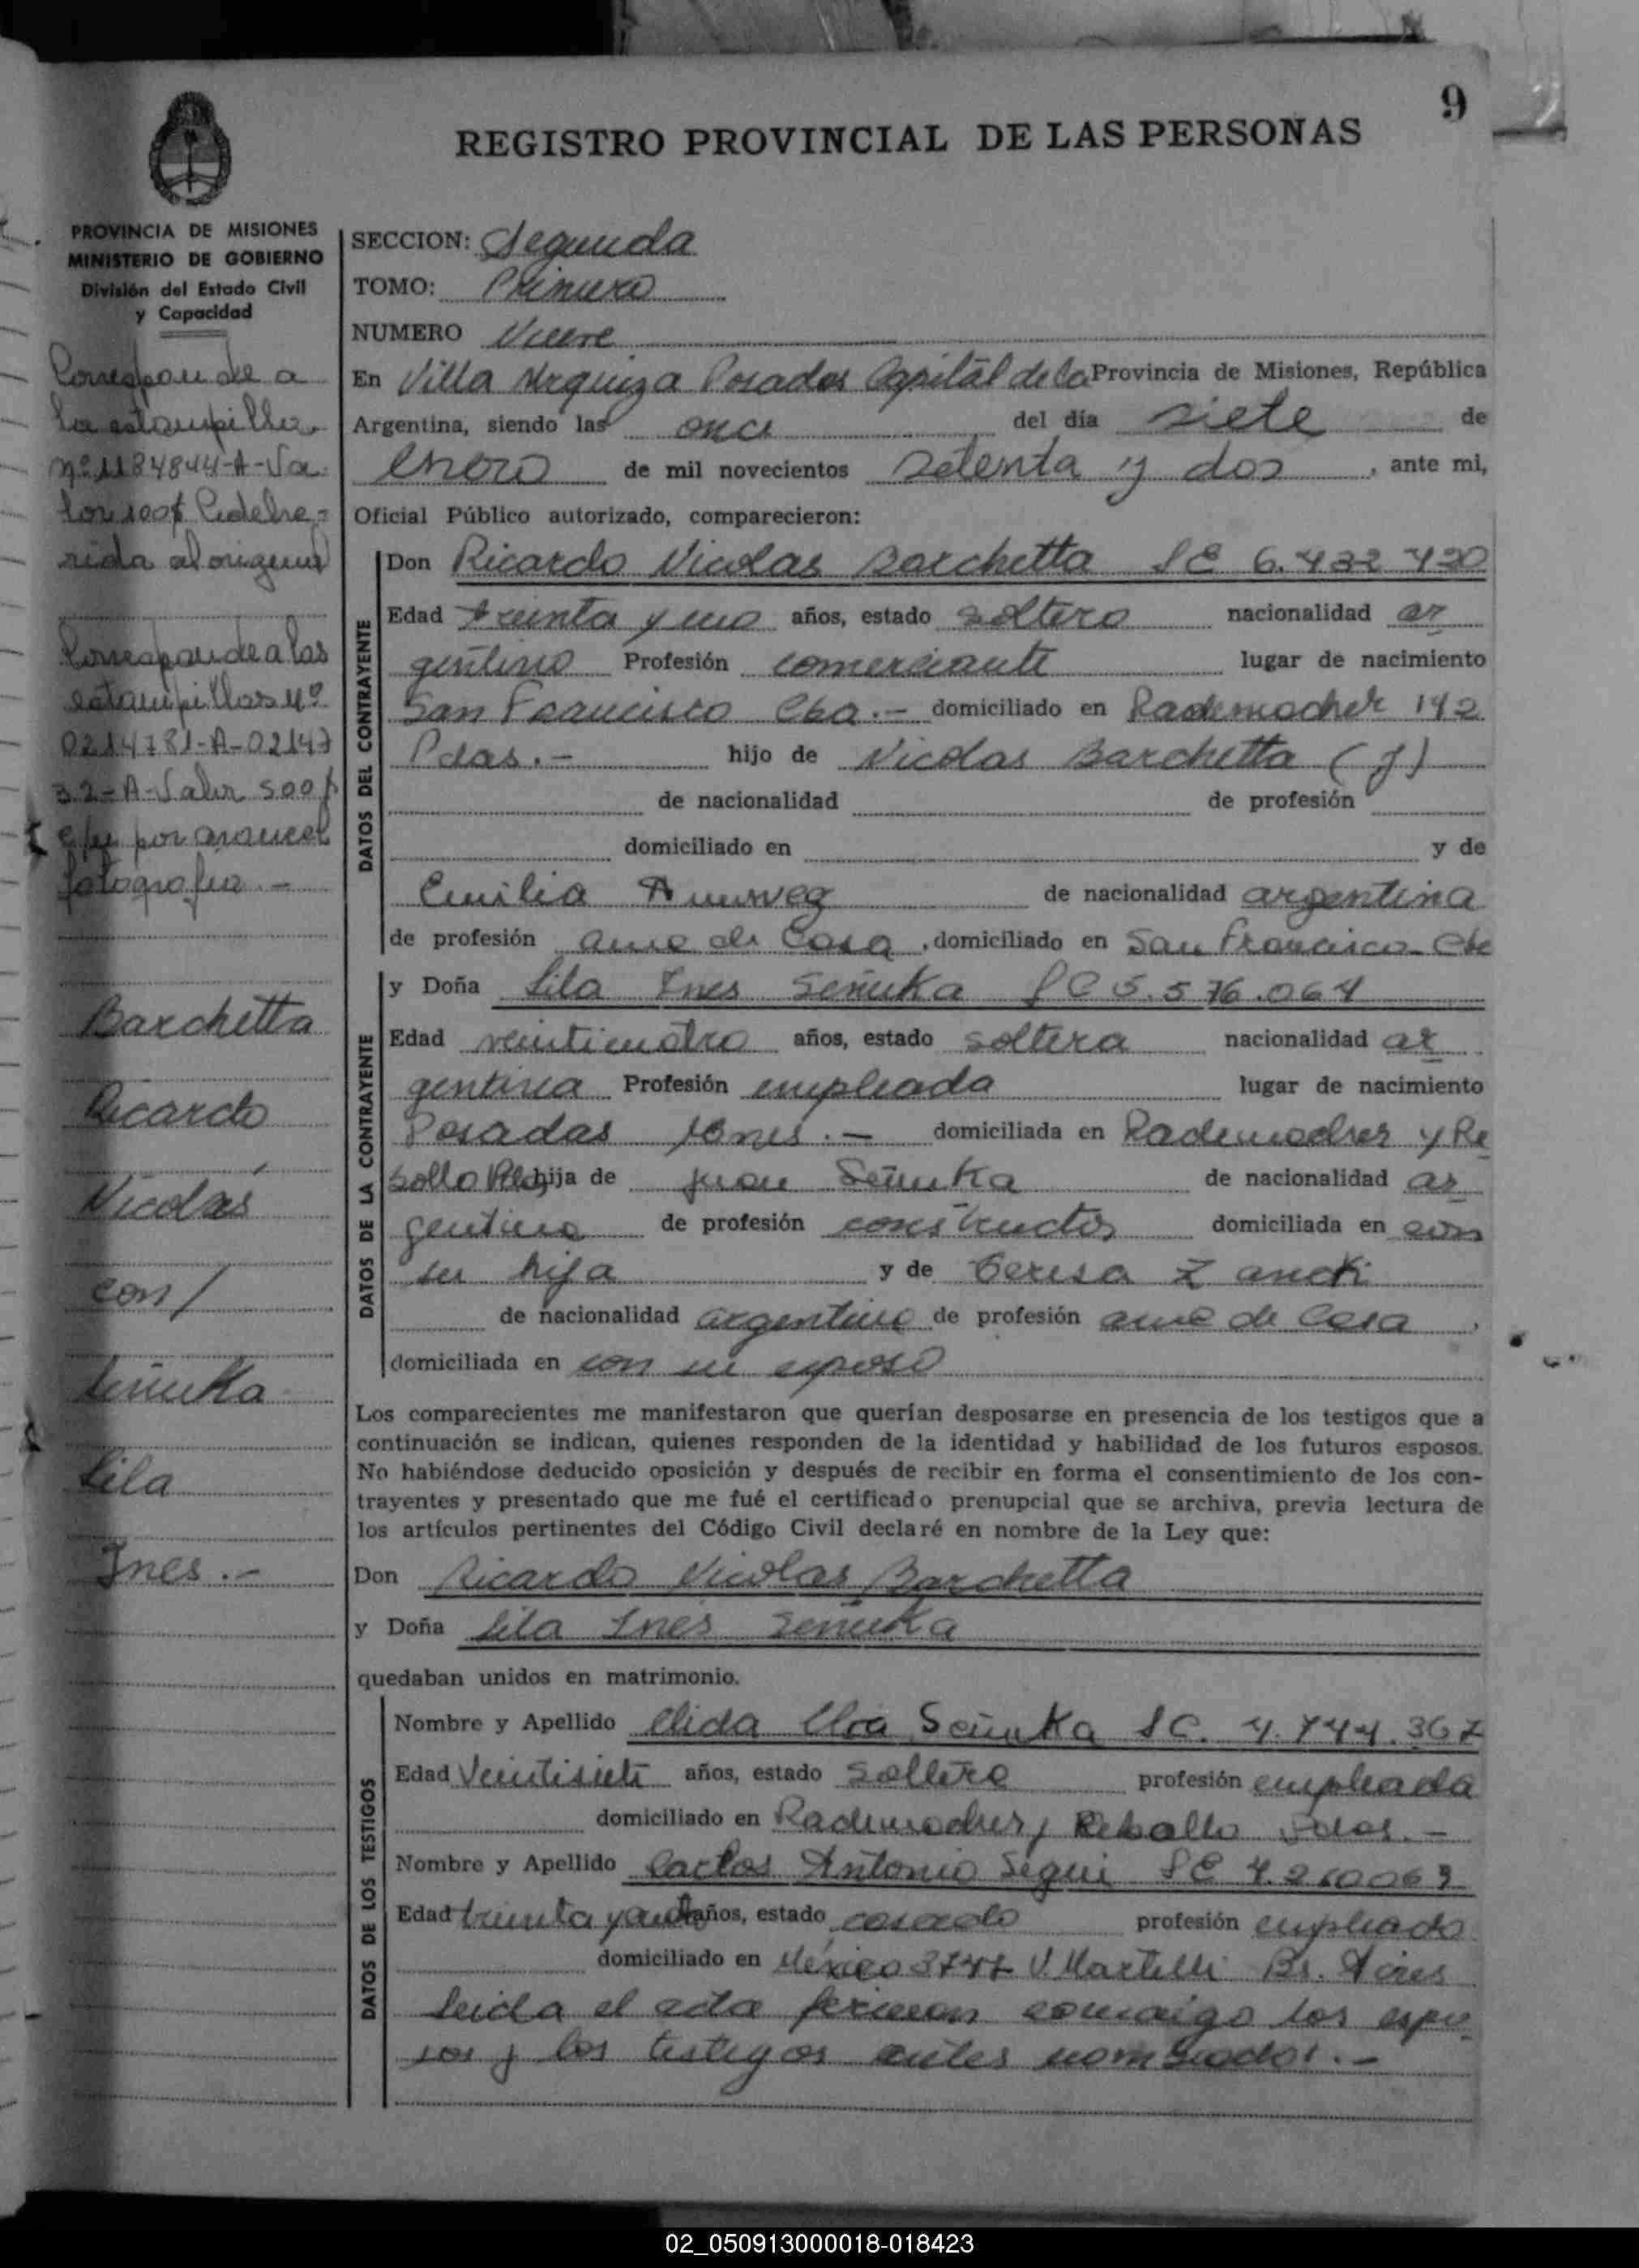 9
REGISTRO PROVINCIAL DE LAS PERSONAS
PROVINCIA DE MISIONES
MINISTERIO DE GOBIERNO
División del Estado Civil
y Capacidad
Corresponde a
la estampilla
nº 1184844-A-Va
lor 100$ adhe-
rida al original
Corresponde a las
estampillas nº
0214781-A-02147
32-A-Valor 500$
c/u por arancel
fotografia.-
Barchetta
Ricardo
Nicolás
con/
Señuka
Lila
Ines.-
SECCION: Segunda
TOMO: Primero
NUMERO Nueve
En Villa Urquiza Posadas Capital de la Provincia de Misiones, República
Argentina, siendo las once del día siete de
enero de mil novecientos setenta y dos, ante mi,
Oficial Público autorizado, comparecieron:
DATOS DEL CONTRAYENTE
Don Ricardo Nicolas Barchetta LE 6.432.420
Edad treinta y uno años, estado soltero nacionalidad ar
gentino Profesión comerciante lugar de nacimiento
San Francisco Cba.- domiciliado en Rademacher 142
Pdas.- hijo de Nicolas Barchetta (f)
de nacionalidad de profesión
domiciliado en y de
Emilia de nacionalidad argentina
de profesión ama de Casa, domiciliado en San Francisco Cba
DATOS DE LA CONTRAYENTE
y Doña Lila Ines Señuka LC 5.576.064
Edad veinticuatro años, estado soltera nacionalidad ar
gentina Profesión empleada lugar de nacimiento
Posadas Mnes.- domiciliada en Rademacher y Re
bollo hija de Juan Señuka de nacionalidad ar
gentino de profesión constructor domiciliada en con
su hija y de Teresa Zancki
de nacionalidad argentina de profesión ama de Casa,
domiciliada en con su esposo
Los comparecientes me manifestaron que querían desposarse en presencia de los testigos que a
continuación se indican, quienes responden de la identidad y habilidad de los futuros esposos.
No habiéndose deducido oposición y después de recibir en forma el consentimiento de los con-
trayentes y presentado que me fué el certificado prenupcial que se archiva, previa lectura de
los artículos pertinentes del Código Civil declaré en nombre de la Ley que:
Don Ricardo Nicolas Barchetta
y Doña Lila Ines Señuka
quedaban unidos en matrimonio.
DATOS DE LOS TESTIGOS
Nombre y Apellido Elida Señuka LC. 4.744.367
Edad Veintisiete años, estado Soltera profesión empleada
domiciliado en Rademacher y Rebollo Pdas.-
Nombre y Apellido Carlos Antonio Segui LE 4.260063
Edad treinta y años, estado casado profesión empleado
domiciliado en México 3747 V. Martelli Bs. Aires
leida el acta firman conmigo los espo
sos y los testigos antes nombrados.-
02_050913000018-018423